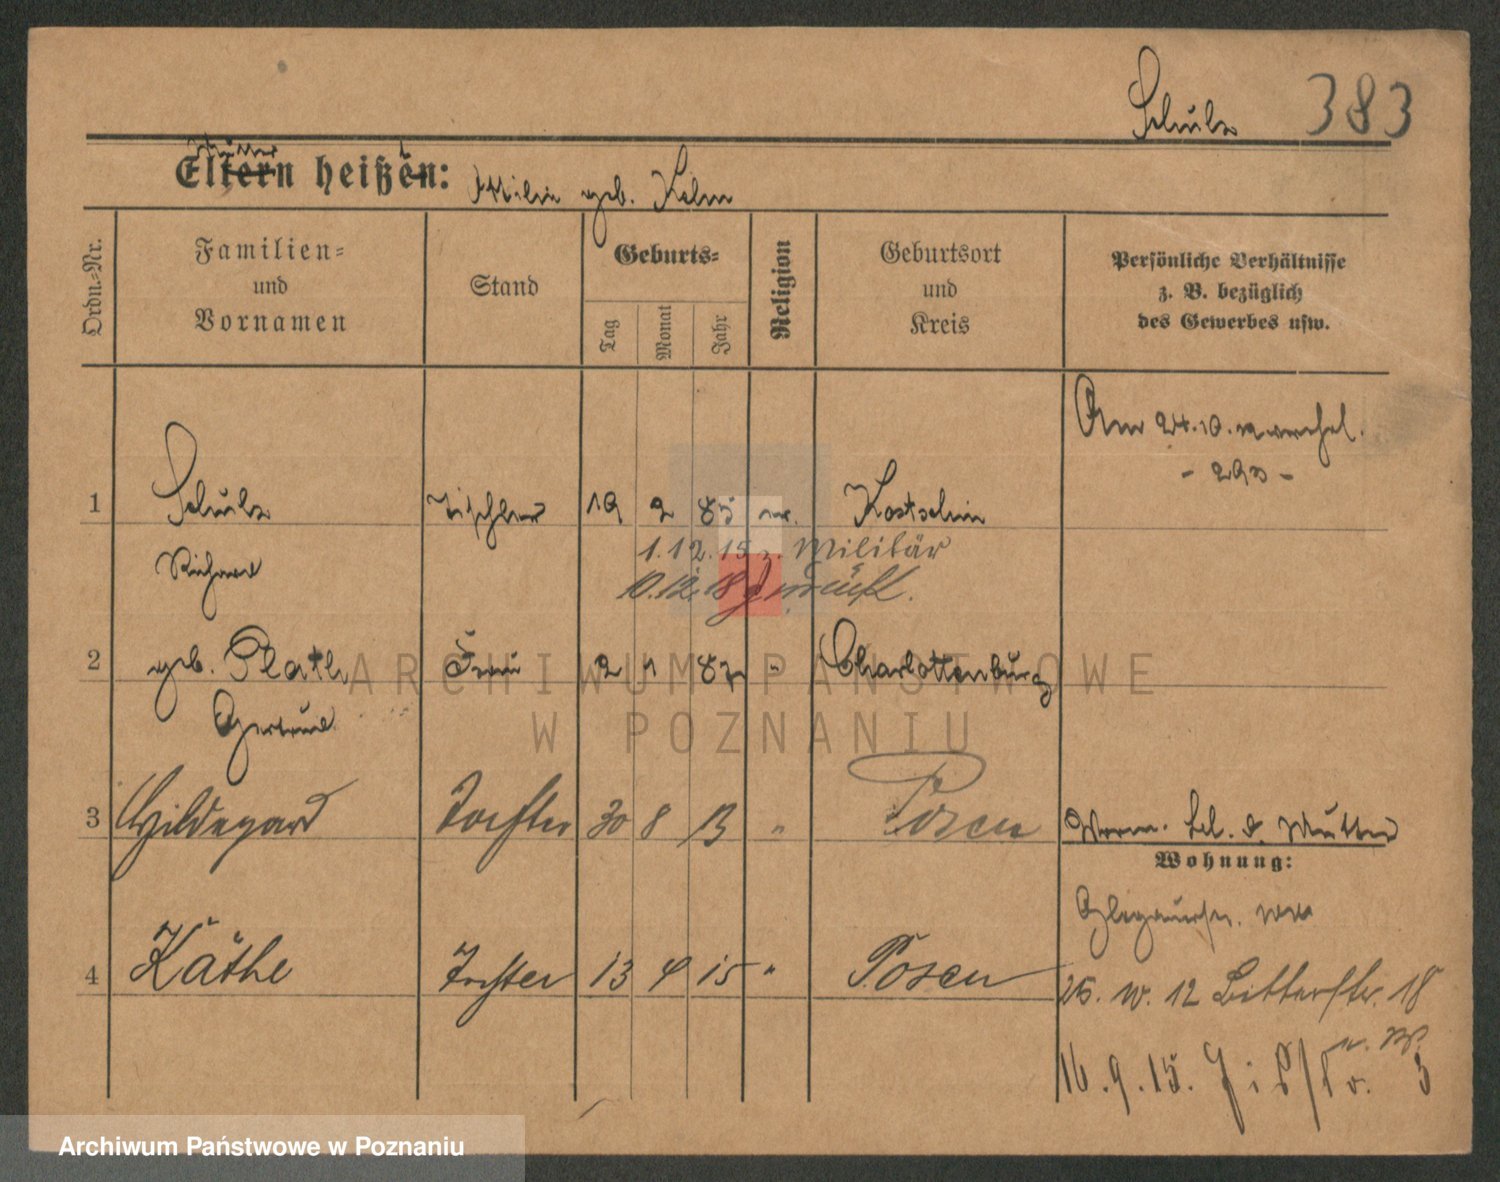 Schulz 383
Mutter
Eltern heißen: Emilie geb. Kelm
Ordn.-Nr.
Familien-
und
Vornamen
Stand
Geburts-
Tag
Monat
Jahr
Religion
Geburtsort
und
Kreis
Persönliche Verhältnisse
z. B. bezüglich
des Gewerbes usw.
Am 24.10.12 verehel.
1 Schulz Tischler 19 2 85 ev. Kostschin
1.12.15 z. Militär
Richard
10.12.18 zurück.
2 geb. Plath Frau 2 1 87 " Charlottenburg
Gertrud
3 Hildegard Tochter 30 8 13 " Posen
Mutter
Wohnung:
4 Käthe Tochter 13 4 15 " Posen
12 Bitterstr. 18
16.9.15.
ARCHIWUM PAŃSTWOWE
W POZNANIU
Archiwum Państwowe w Poznaniu